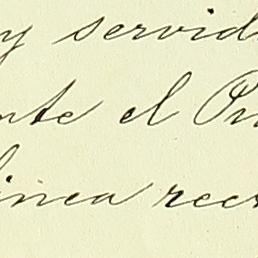 y servid
nte el Pu
linea rec